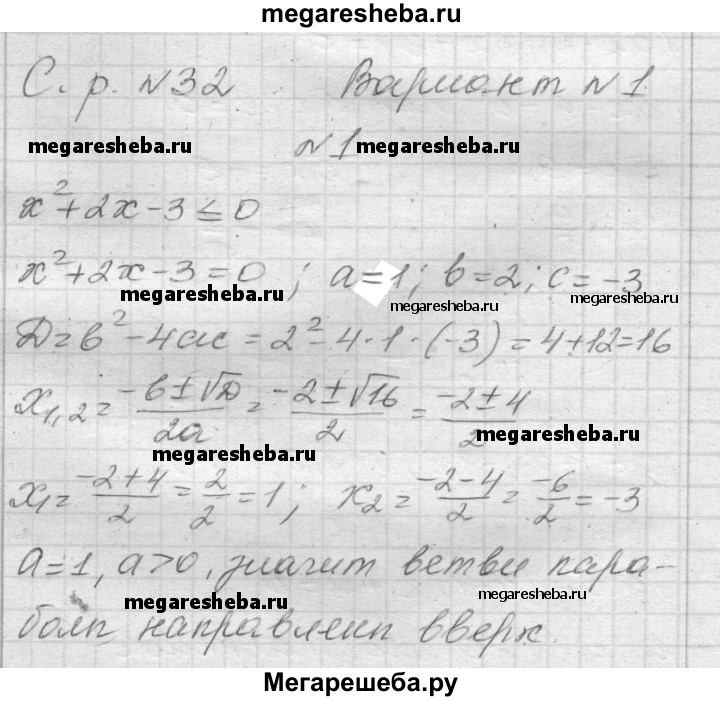 megaresheba.ru
С. р. №32 Вариант №1
megaresheba.ru №1 megaresheba.ru
x²+2x-3≤0
x²+2x-3=0; a=1; b=2; c=-3
megaresheba.ru megaresheba.ru megaresheba.ru
D=b²-4ac=2²-4·1·(-3)=4+12=16
x1,2=(-b±√D)/2a=(-2±√16)/2=(-2±4)/2
megaresheba.ru megaresheba.ru
x1=(-2+4)/2=2/2=1; x2=(-2-4)/2=-6/2=-3
a=1, a>0, значит ветви пара-
megaresheba.ru megaresheba.ru
болы направлены вверх.
Мегарешеба.ру